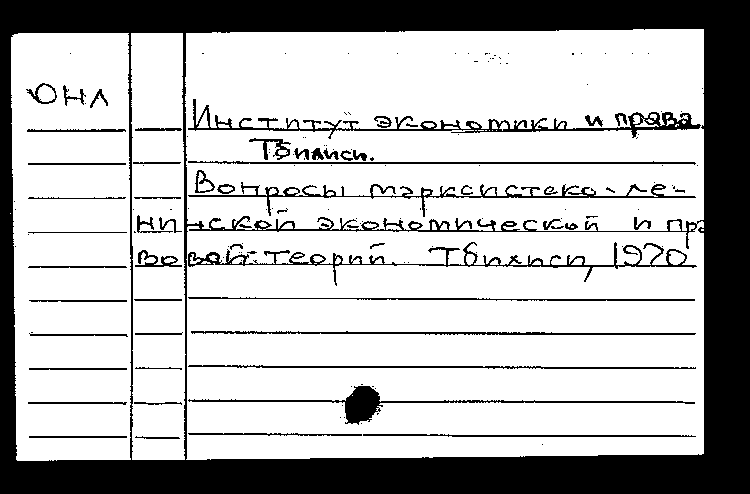 ЮНЛ
Институт экономики и права
Тбилиси.
Вопросы марксистско-ле-
нинской экономической и пра
вовой теорий. Тбилиси, 1970